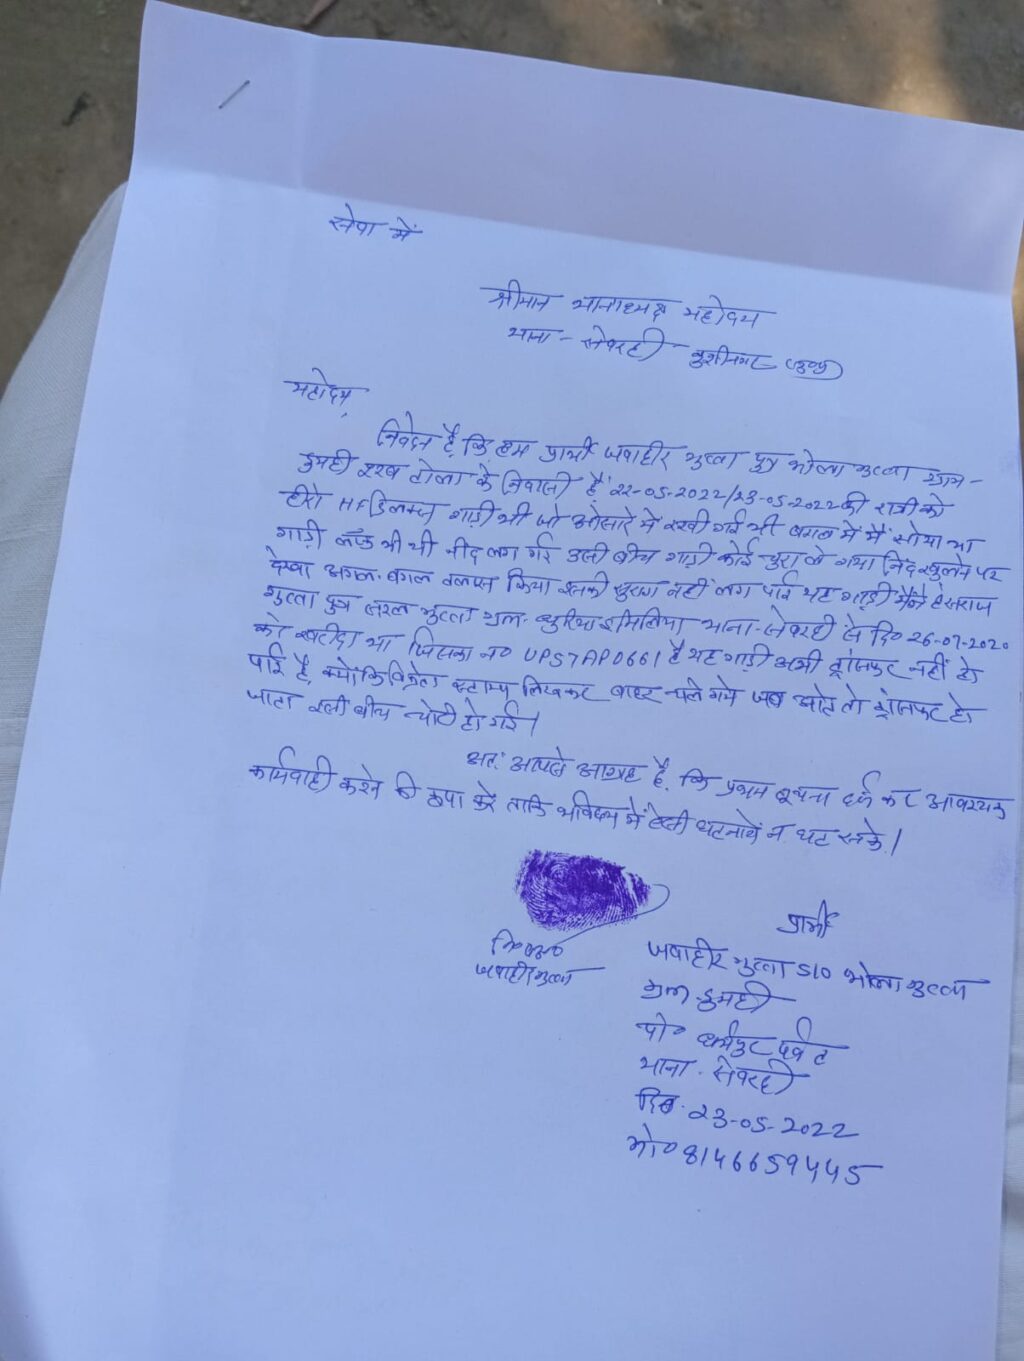 सेवा में
श्रीमान थानाध्यक्ष महोदय
थाना - सेवरही कुशीनगर उ०प्र०
महोदय,
निवेदन है कि हम प्रार्थी जवाहीर गुप्ता पुत्र भोला गुप्ता ग्राम -
डुमही टोला के निवासी है 22-05-2022/23-05-2022 की रात्री को
हीरो HF डिलक्स गाड़ी थी जो ओसारे मे रखी गई थी बगल में मैं सोया था
गाड़ी थी नीद लग गई उसी बीच गाड़ी कोई चुरा ले गया निद खुलने पर
देखा अगल-बगल तलास किया इसकी सुराग नहीं लग पाई यह गाड़ी मैने हंसराज
गुप्ता पुत्र सरल गुप्ता ग्राम- इमिलिया थाना-सेवरही से दि० 26-07-2020
को खरीदा था जिसका न० UP57AP0661 है यह गाड़ी अभी ट्रांसफर नहीं हो
पाई है, क्योंकि विक्रेता स्टाम्प लिखकर बाहर चले गये जब ओते तो ट्रांसफर हो
जाता इसी बीच चोरी हो गई।
अतः आपसे आग्रह है, कि प्रथम सूचना दर्ज कर आवश्यक
कार्यवाही करने की कृपा करें ताकि भविष्य में ऐसी घटनायें न घट सके।
प्रार्थी
नि०अं०
जवाहीर गुप्ता
जवाहीर गुप्ता S/O भोला गुप्ता
ग्राम- डुमही
पो० धर्मपुर पर्वत
थाना. सेवरही
दि०. 23-05-2022
मो० 8146659445